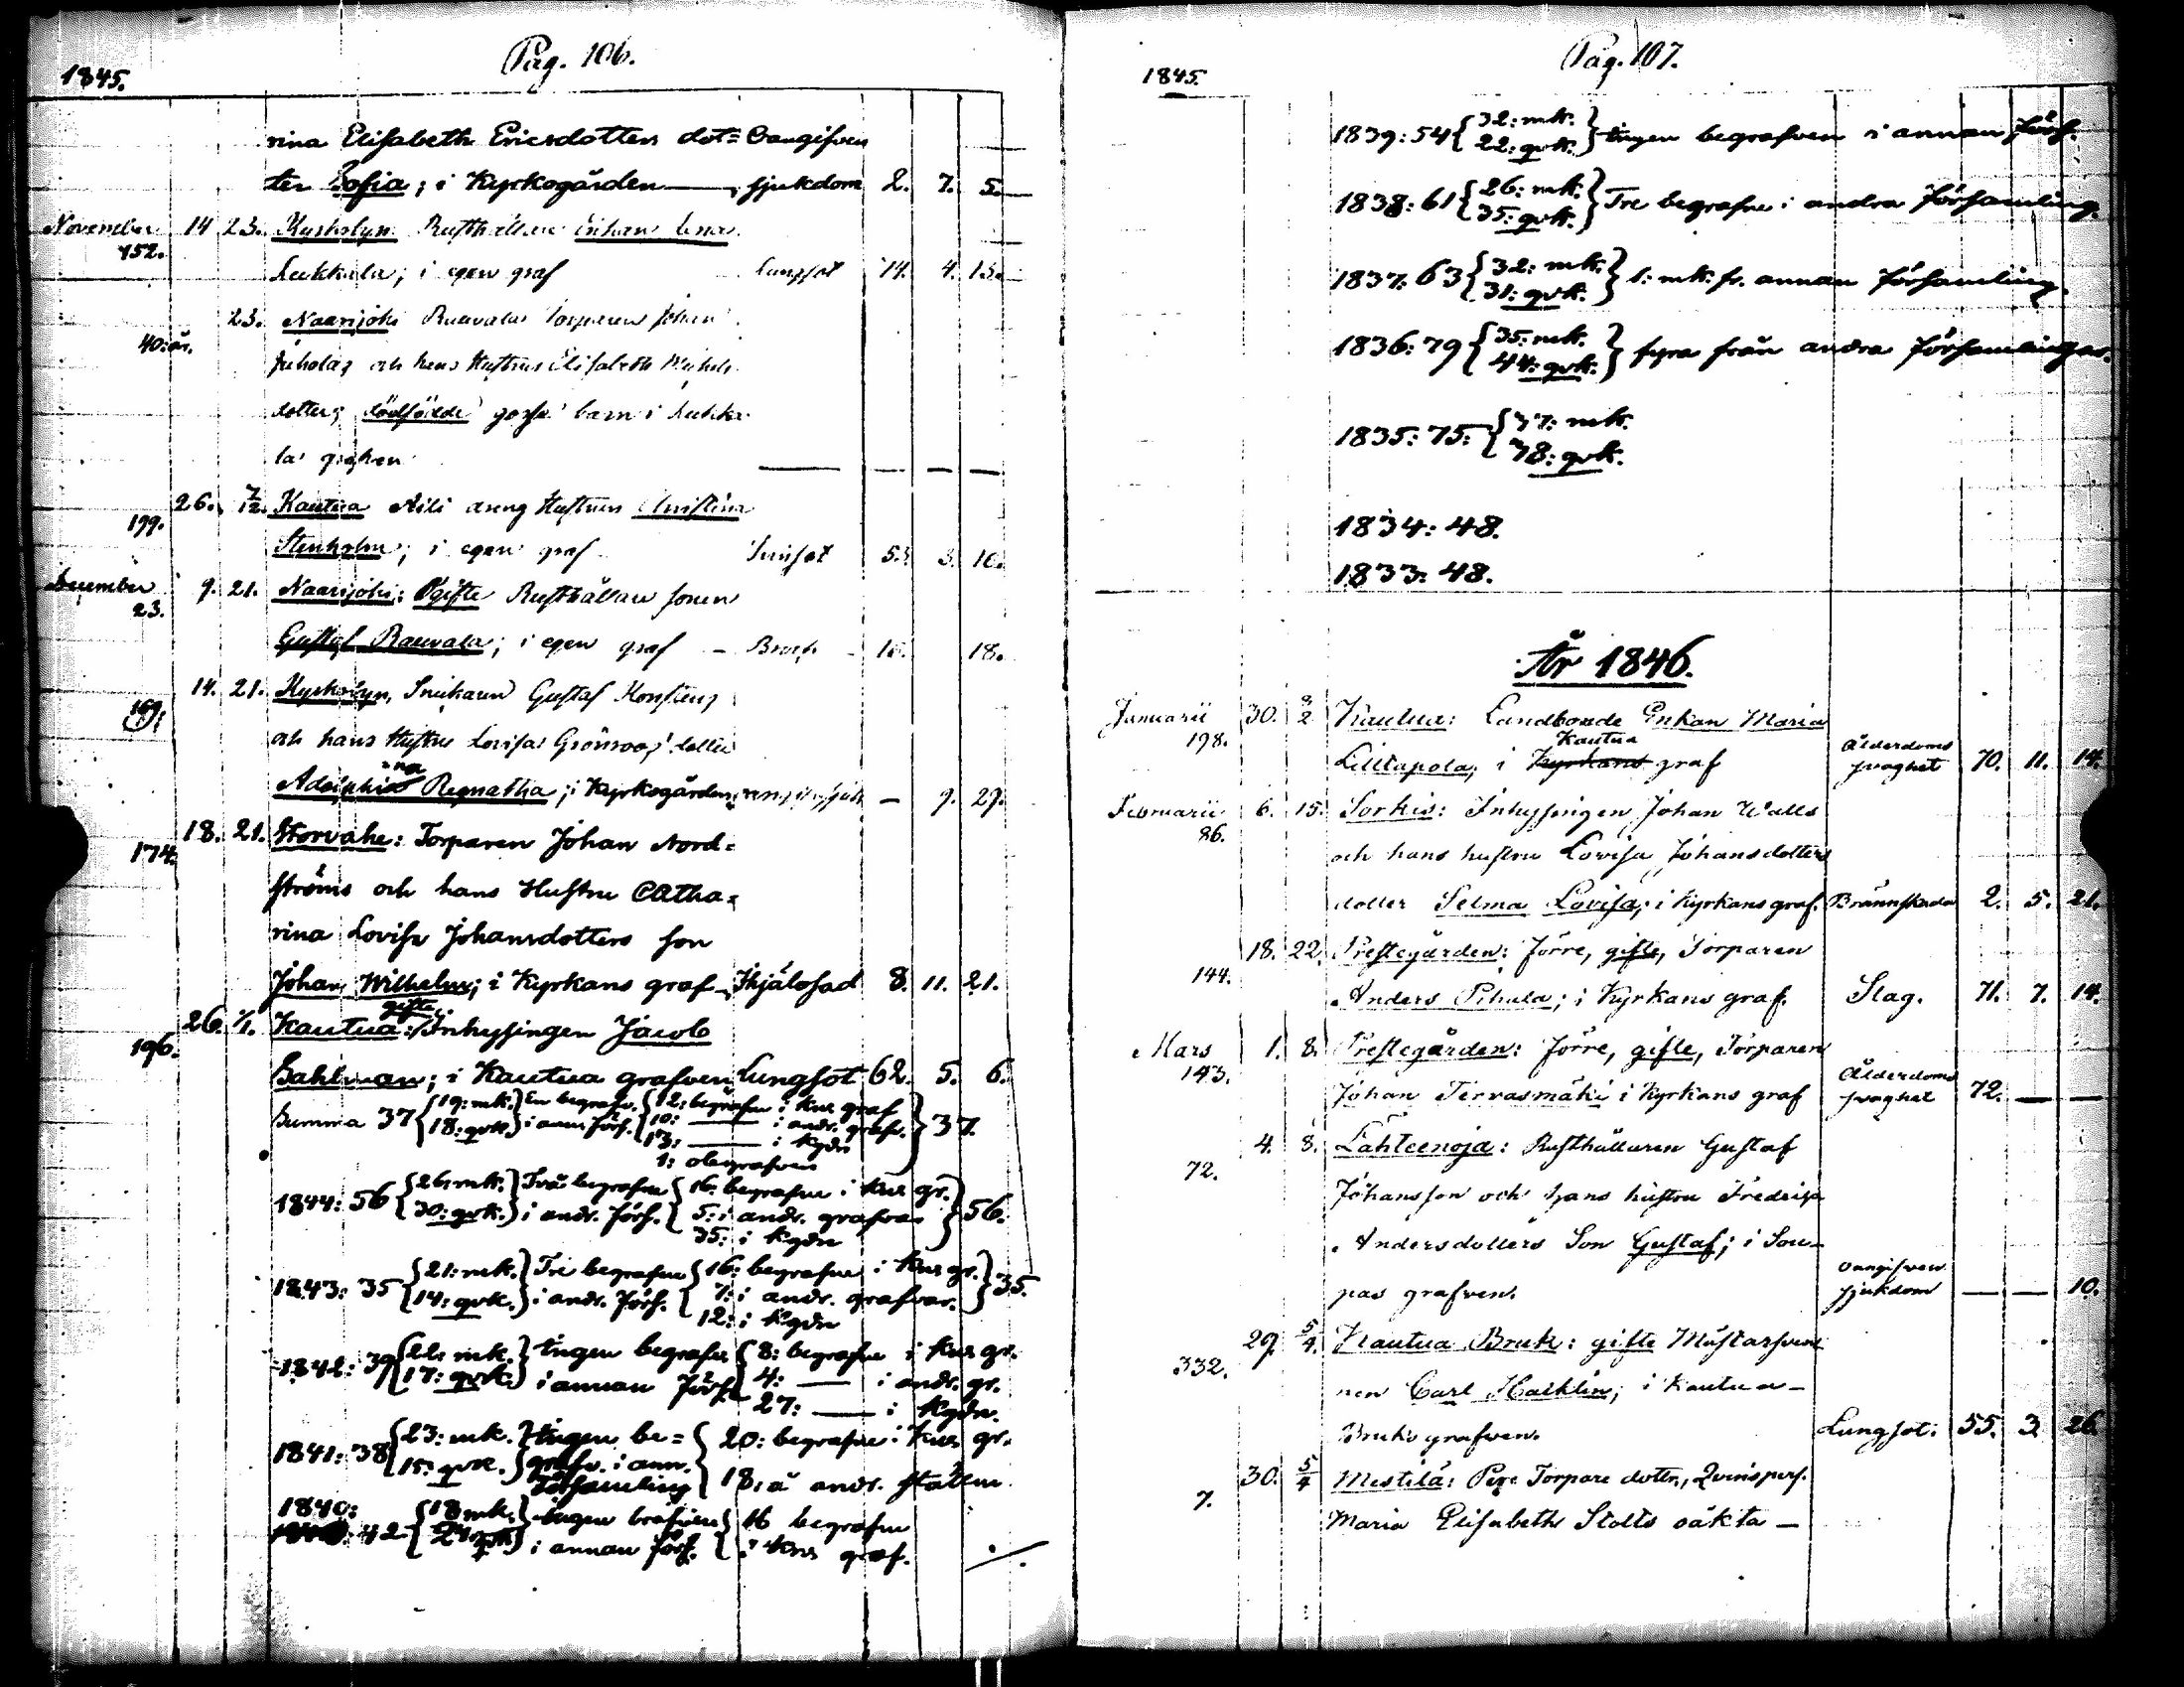 Pag. 106.
1845.
rina Elisabeth Ericsdotters dot= Oangifven
ter Sofia; i Kyrkogården — sjukdom 2. 7. 5.
November 14 23. Kyrkobyn Rusthållare Enkan Lena
152.
Lukkala; i egen graf Lungsot 74. 4. 13.
23. Naarijoki Rauvala Torparen Johan
40:år.
och hans Hustrus Elisabeth Michels
dotters dödfödde gosse barn i Lukka
la grafven — — —
26. 7/12 Kautua Aili dreng Hustrun Christina
199.
Stenholm; i egen graf Lungsot 53. 3. 10.
December 9. 21. Naarijoki: Ogifte Rusthållare sonen
23.
Gustaf Rauvala; i egen graf — 18.
14. 21. Kyrkobyn, Snickaren Gustaf
169.
och hans Hustru Lovisa Grönroos' dotter
Adolphina Regnatha; i Kyrkogården — 9. 29.
18. 21. Storvahe: Torparen Johan Nord=
174.
ströms och hans Hustru Catha=
rina Lovisa Johansdotters son
Johan Wilhelm; i Kyrkans graf 8. 11. 21.
gifte
26. 1/1. Kautua: Inhysingen Jacob
196.
Bahlman; i Kautua grafven Lungsot 62. 5. 6.
Summa 37 { 19: mk. 18: qvk. } En begrafv. i ann. förs. { 12: begrafne i Kns graf
10: — i andr. grafv.
13: — i Kgdn
1: obegrafven } 37.
1844: 56 { 26: mk. 30: qvk. } Två begrafne i andr. förs. { 16: begrafne i Kns gr.
5: i andr. grafvar
35: i Kgdn } 56.
1843: 35 { 21: mk. 14: qvk. } Tre begrafne i andr. förs. { 16: begrafne i Kns gr.
7: i andr. grafvar.
12: i Kgdn } 35.
1842: 39 { 22: mk. 17: qvk. } Ingen begrafne i annan förs. { 8: begrafne i Kns gr.
4: — i andr. gr.
27: — i Kgdn.
1841: 38 { 23: mk. 15: qvk. } Ingen be= grafv. i ann. församling { 20: begrafne i Kns gr.
18: å andr. ställen
1840: 42 { 18 mk. 24 qvk } Ingen i annan förs. { 16 begrafne
i Kns graf.
Pag. 107.
1845.
1839: 54 { 32: mk. 22: qvk. } Ingen begrafven i annan förs.
1838: 61 { 26: mk. 35: qvk. } Tre begrafne i andra församling.
1837: 63 { 32: mk. 31: qvk. } 1: mk. fr. annan församling.
1836: 79 { 35: mk. 44: qvk. } fyra från andra församlingar.
1835: 75: { 37: mk. 38: qvk.
1834: 48.
1833: 48.
År 1846.
Januarii 30. 8/2 Kautua: Landbonde Enkan Maria
198. Kautua Ålderdoms
Lilltapola; i Kyrkans graf svaghet 70. 11. 14.
Februarii 6. 15. Sorkis: Inhysingen Johan Walls
86.
och hans hustru Lovisa Johansdotters
dotter Selma Lovisa; i Kyrkans graf. Brännskada 2. 5. 21.
18. 22. Prestegården: Förre, gifte, Torparen
144.
Anders Pihala; i Kyrkans graf. Slag. 71. 7. 14.
Mars 1. 8. Prestegården: Förre, gifte, Torparen
143. Ålderdoms
Johan Tervasmäki i Kyrkans graf svaghet 72. — —
4. 8. Lähteenoja: Rusthållaren Gustaf
72.
Johansson och hans hustru Fredrika
Andersdotters Son Gustaf; i Sou-
oangifven
pas grafven. sjukdom — — 10.
29. 5/4. Kautua Bruk: gifte Mästarsven
332.
nen Carl Haiklin; i Kautua-
Bruks grafven. Lungsot: 55. 3 26
30. 5/4 Mestilä: Torpare dottr., Qvinspers.
7.
Maria Elisabeth Stolts oäkta —